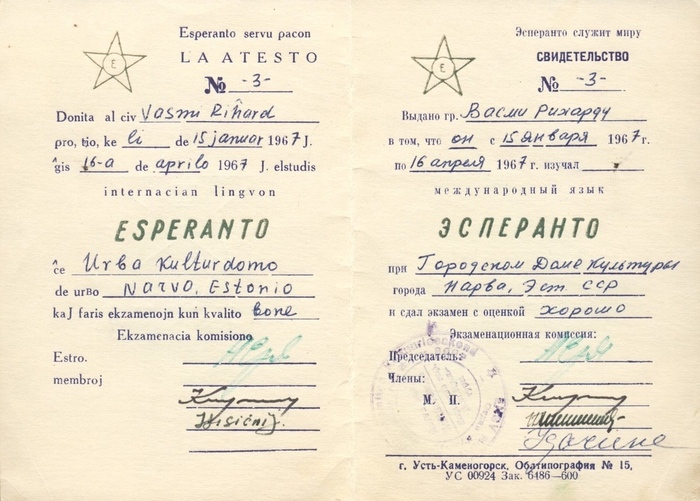 Esperanto servu pacon
LA ATESTO
№ -3-
Donita al civ Vasmi Riĥard
pro, tio, ke li de 15 januar 1967 J.
ĝis 16-a de aprilo 1967 J. elstudis
internacian lingvon
ESPERANTO
ĉe Urba Kulturdomo
de urbo Narvo, Estonio
kaJ faris ekzamenojn kun kvalito bone
Ekzamenacia komisiono
Estro.
membroj
E
Эсперанто служит миру
СВИДЕТЕЛЬСТВО
№ -3-
Выдано гр. Васми Рихарду
в том, что он с 15 января 1967г.
по 16 апреля 1967г. изучал
международный язык
ЭСПЕРАНТО
при Городском Доме Культуры
города Нарва, Эст. ССР
и сдал экзамен с оценкой хорошо
Экзаменационная комиссия:
Председатель:
Члены:
М. П.
г. Усть-Каменогорск, Облтипография № 15,
УС 00924 Зак. 6486—600
E